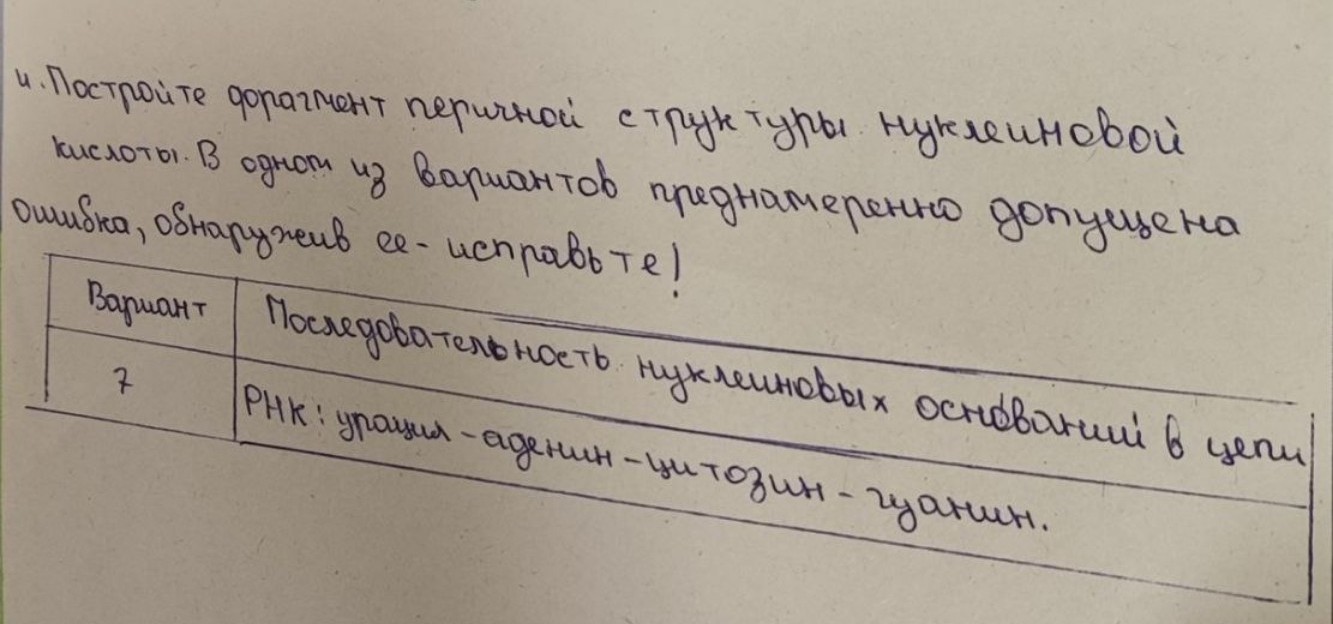 4. Постройте форагмент перичной структуры нуклеиновой
кислоты. В одном из вариантов преднамеренно допущена
ошибка, обнаружив ее - исправьте!
Вариант Последовательность нуклеиновых оснований в цепи
7 РНК: урацил - аденин - цитозин - гуанин.